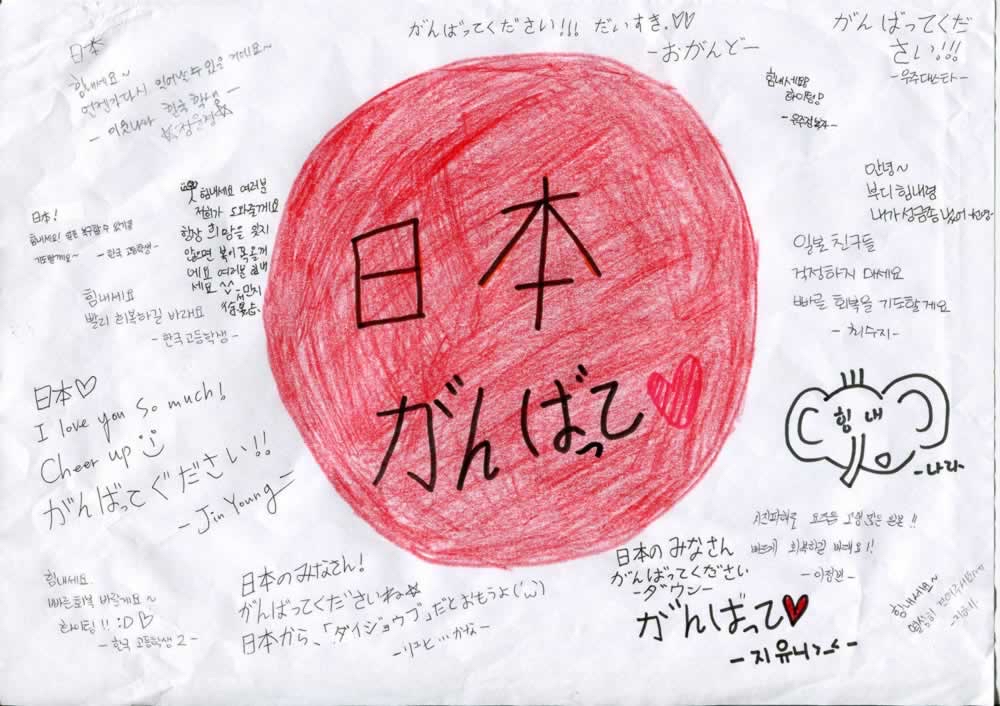 がんばってください!!! だいすき.♡♡
-おがんど-
がんばってくだ
さい!!!
-우주대스타-
日本
힘내세요~
언젠가 다시 일어날 수 있을 거에요~
- 이웃나라 한국 학생 -
힘내세요
하이팅!
안녕~
부디 힘내렴
내가 성금좀 냈어
日本!
- 한국 고등학생 -
힘내세요 여러분
저희가 도와줄게요
항상 희망을 잃지
않으면 복이 꼭 올꺼
에요 여러분 힘내
세요 ^^
일본 친구들
걱정하지 마세요
빠른 회복을 기도할게요
- 최수지 -
힘내세요
빨리 회복하길 바래요
- 한국고등학생 -
日本
がんばって♡
日本♡
I love you so much!
Cheer up
がんばってぐださい!!
- Jin Young -
힘 내
-나라-
日本のみなさん
がんばってください
-ダウン-
がんばって♥
- 지유니>_< -
빠르게 회복하길 바래요!!
힘내세요.
빠른회복 바랄게요~
화이팅!! :D ♡
- 한국 고등학생 2 -
日本のみなさん!
がんばってくださいね☆
日本から、「ダイジョウブ」だとおもうよ('ω')
힘내세요~